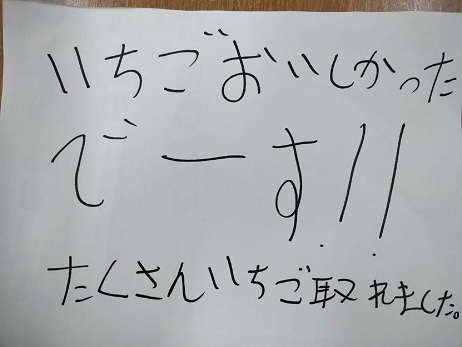 いちごおいしかった
でーす!!
たくさんいちご取れました。